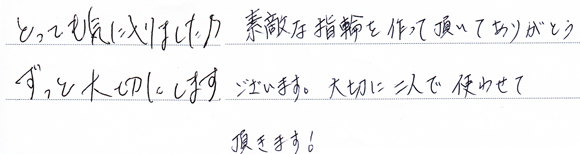 とっても気に入りました♪
ずっと大切にします
素敵な指輪を作って頂いてありがとう
ございます。大切に二人で使わせて
頂きます!